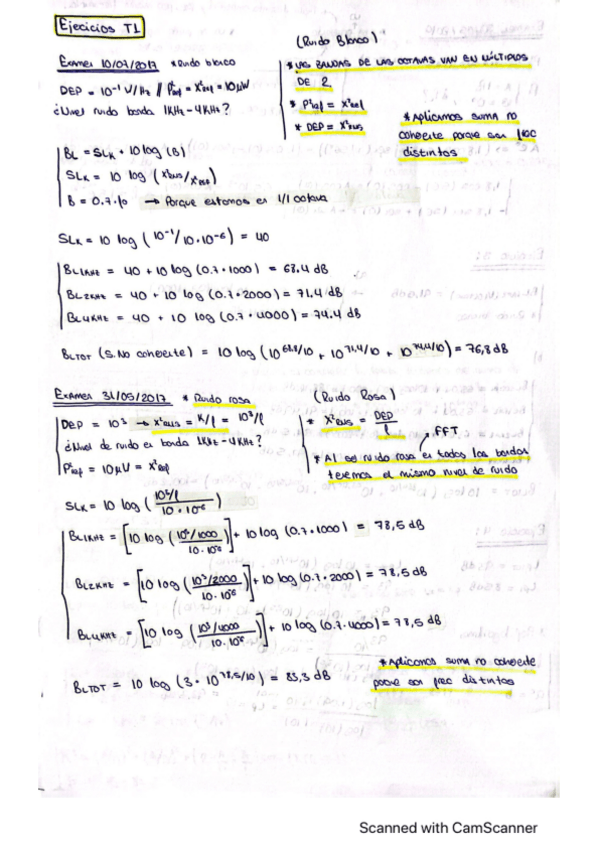 Ejecicios T1
Examen 10/07/2017 * Ruido blanco
DEP = 10⁻¹ V/Hz // P²ref = X²ref = 10μW
¿Nivel ruido banda 1KHz - 4KHz?
(Ruido Blanco)
* LAS BANDAS DE LAS OCTAVAS VAN EN MÚLTIPLOS
DE 2
* P²ref = X²ref
* DEP = X²RMS
* Aplicamos suma no
coherente porque son frec
distintas
BL = SLK + 10 log (B)
SLK = 10 log (X²RMS/X²REF)
B = 0.7·f0 → Porque estamos en 1/1 octava
SLK = 10 log (10⁻¹/10·10⁻⁶) = 40
BL1KHz = 40 + 10 log (0.7·1000) = 68.4 dB
BL2KHz = 40 + 10 log (0.7·2000) = 71.4 dB
BL4KHz = 40 + 10 log (0.7·4000) = 74.4 dB
BLTOT (S.No coherente) = 10 log (10^68.4/10 + 10^71.4/10 + 10^74.4/10) = 76,8 dB
Examen 31/05/2017 * Ruido rosa
DEP = 10³ → X²RMS = K/f = 10³/f
¿Nivel de ruido en banda 1KHz - 4KHz?
P²ref = 10μV = X²ref
(Ruido Rosa)
* X²RMS = DEP/f
FFT
* Al ser ruido rosa en todas las bandas
tenemos el mismo nivel de ruido
SLK = 10 log (10³/f / 10·10⁻⁶)
BL1KHz = [10 log (10³/1000 / 10·10⁻⁶)] + 10 log (0.7·1000) = 78,5 dB
BL2KHz = [10 log (10³/2000 / 10·10⁻⁶)] + 10 log (0.7·2000) = 78,5 dB
BL4KHz = [10 log (10³/4000 / 10·10⁻⁶)] + 10 log (0.7·4000) = 78,5 dB
BLTOT = 10 log (3·10^78,5/10) = 83,3 dB
* Aplicamos suma no coherente
porque son frec distintas
Scanned with CamScanner